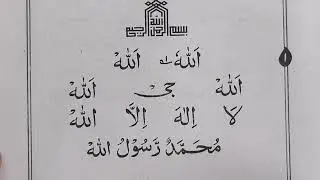 بسم الله الرحمن الرحيم
١
اَللّٰهْ اَللّٰهْ
اَللّٰهْ جِیْ اَللّٰهْ
لَا اِلٰهَ اِلَّا اللّٰهْ
مُحَمَّدٌ رَّسُوْلُ اللّٰهْ